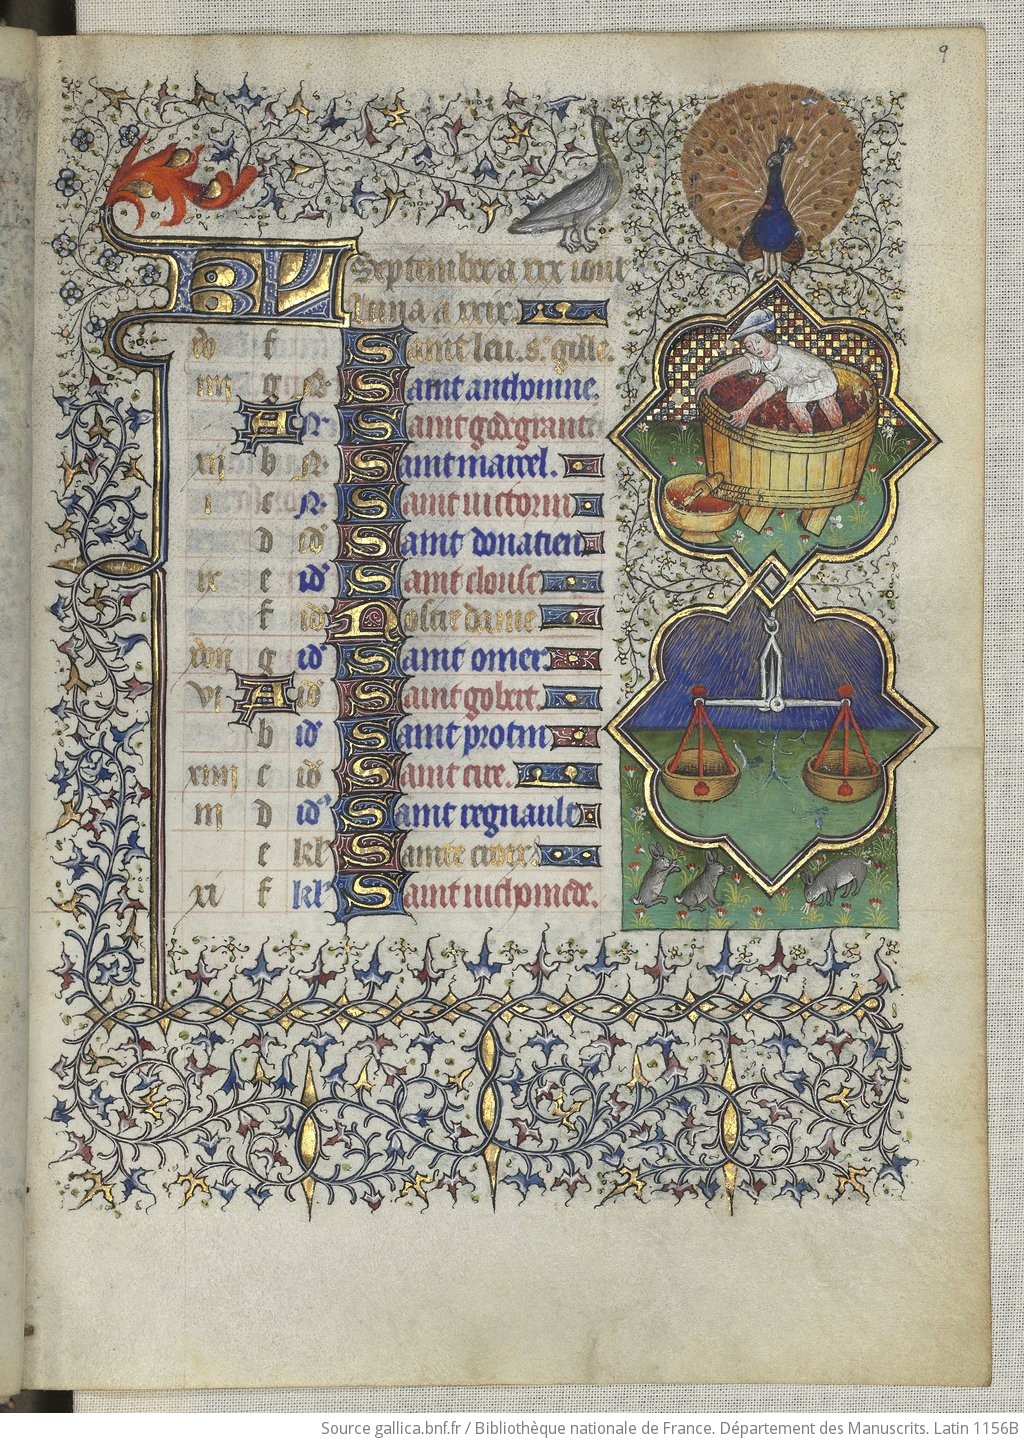 9
KL Septembre a xxx iours
Luna a xxix.
f Saint leu. st gille.
iiii g N Saint anthonine.
A N Saint godegrant
xii b N Saint marcel.
i c N Saint uictorin
d id Saint donatien
ix e id Saint cloust
f id Nostre dame
g id Saint omer.
vi A id Saint gobert.
b id Saint protin
xiiii c id Saint cire.
iii d id Saint regnault
e kl Sainte croix.
xi f kl Saint nichomede.
Source gallica.bnf.fr / Bibliothèque nationale de France. Département des Manuscrits. Latin 1156B